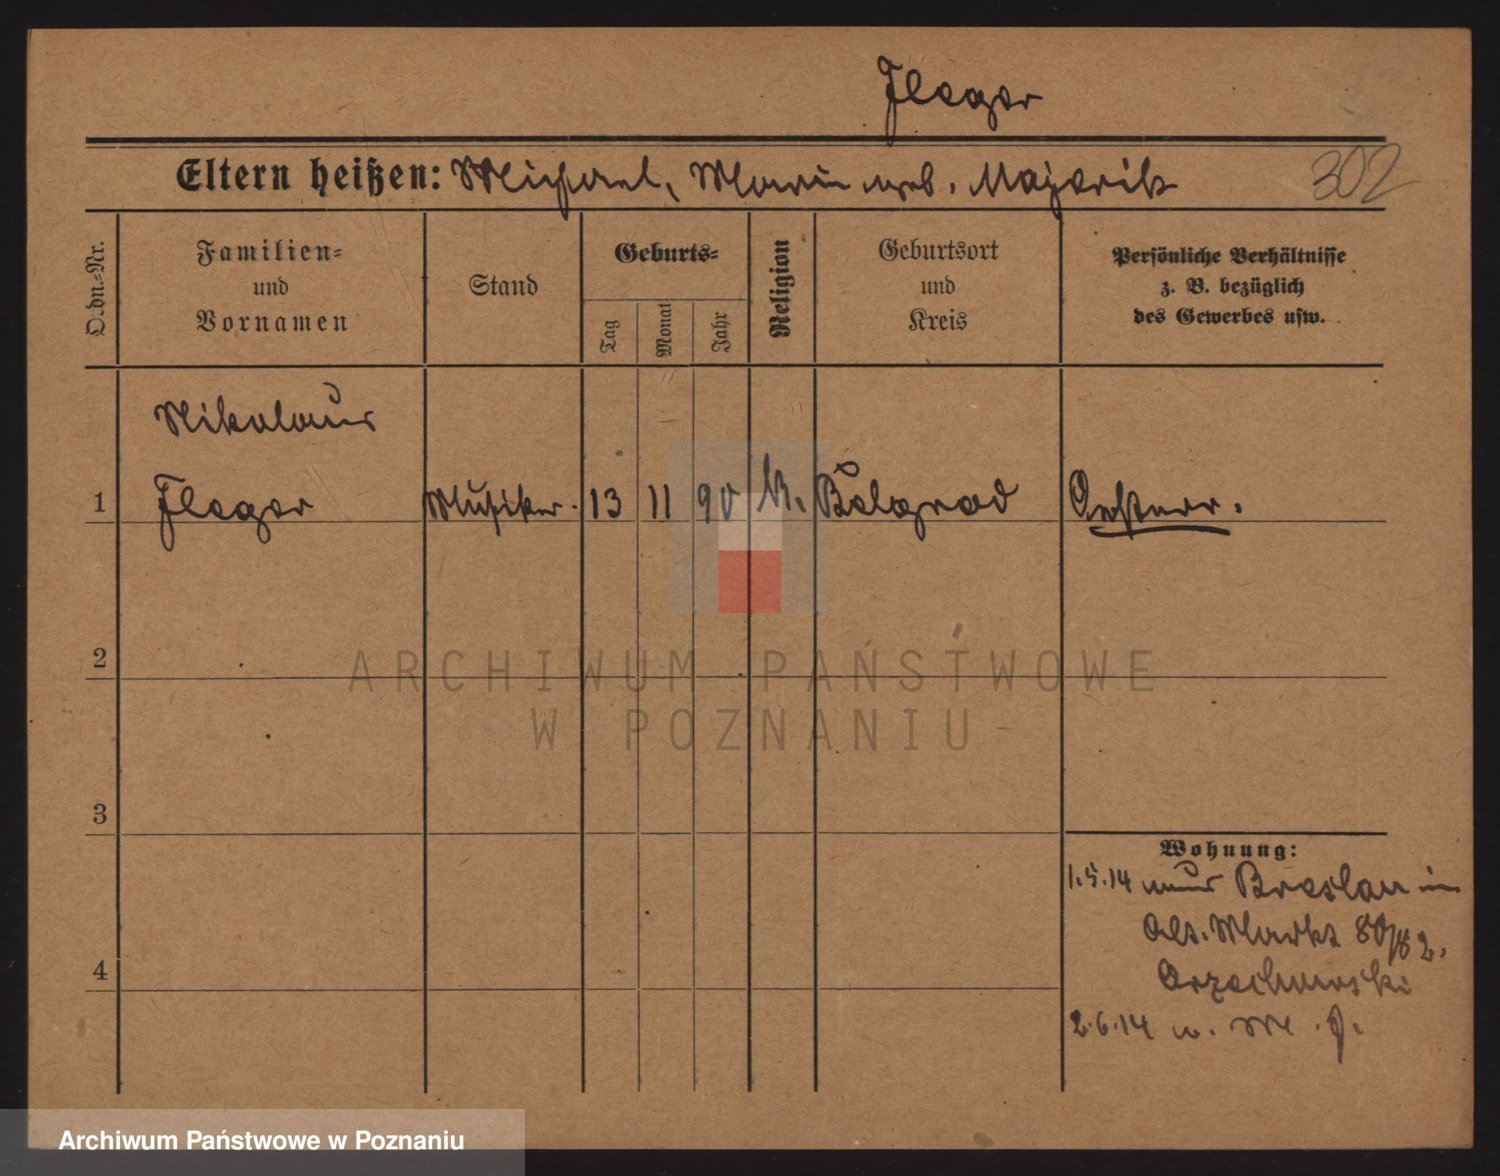 Fleger
Eltern heißen: Michael, Marie geb. Majorik
302
O.dn.-Nr.
Familien-
und
Vornamen
Stand
Geburts-
Tag
Monat
Jahr
Religion
Geburtsort
und
Kreis
Persönliche Verhältnisse
z. B. bezüglich
des Gewerbes usw.
Nikolaus
1 Fleger Musiker. 13 11 90 k. Belgrad Oesterr.
2
3
4
Wohnung:
1.5.14 aus Breslau in
Alt. Markt 80/82.
Orzechowski
2.6.14 n.
ARCHIWUM PAŃSTWOWE
W POZNANIU
Archiwum Państwowe w Poznaniu